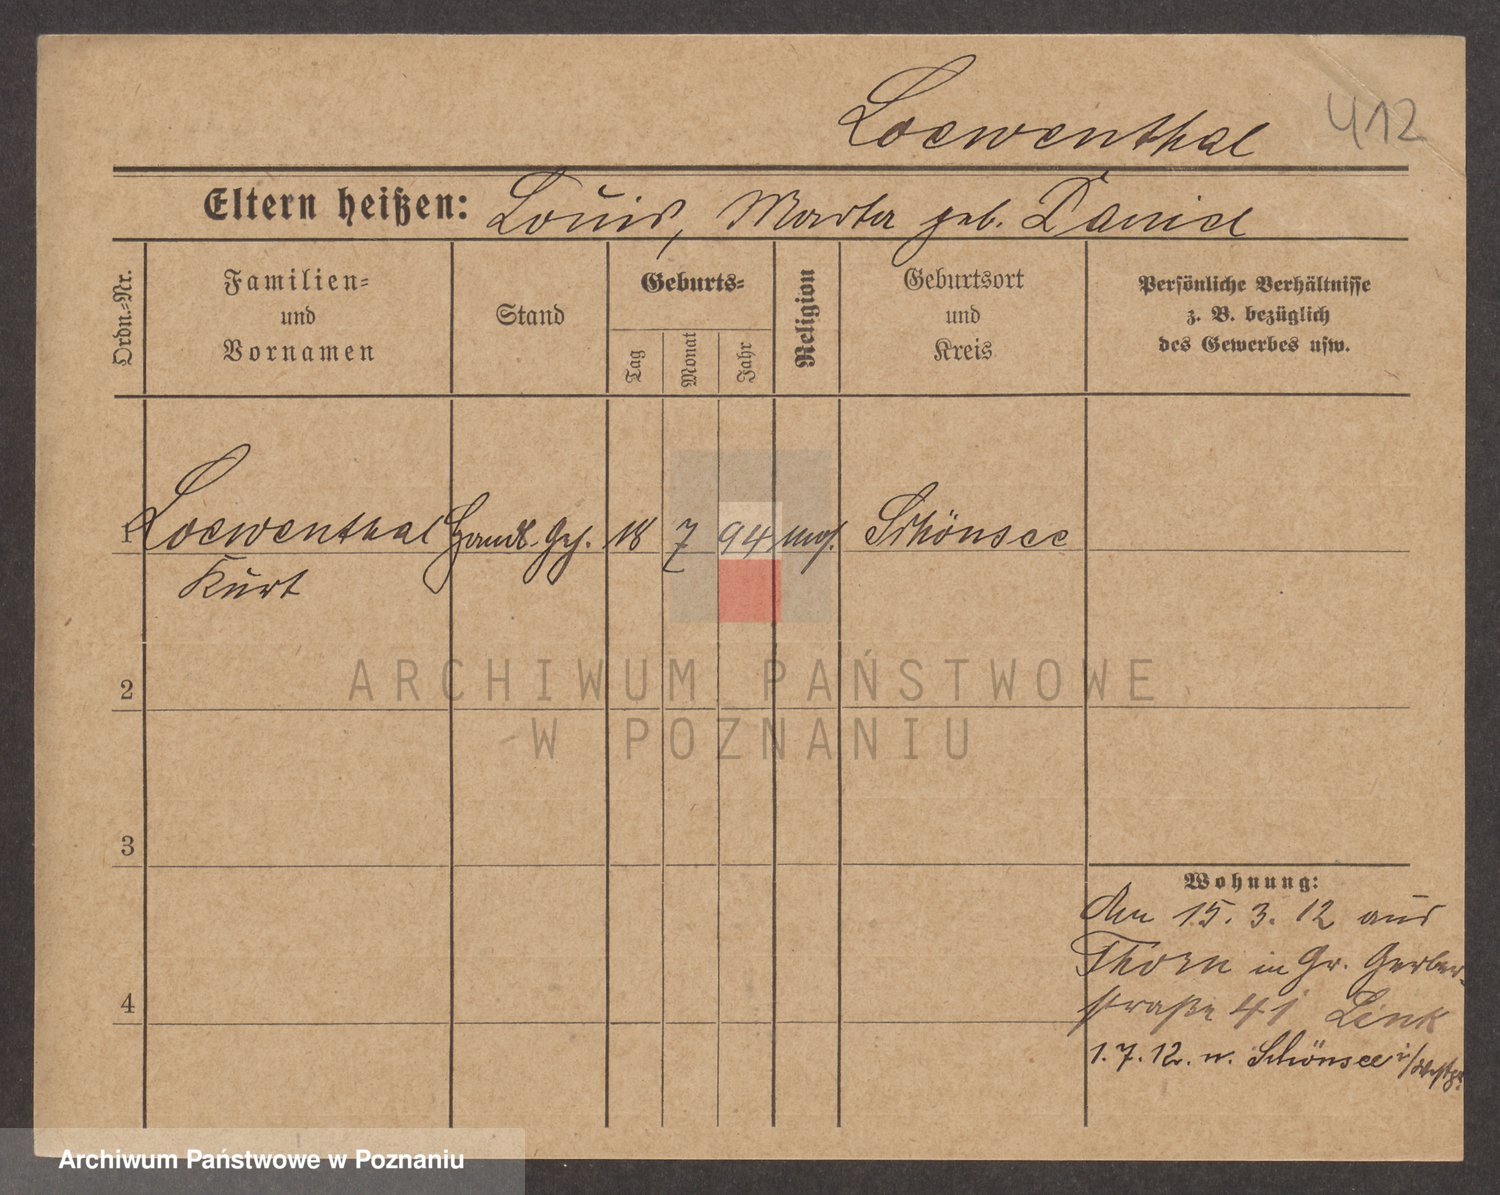 Loewenthal 412
Eltern heißen: Louis, Martha geb. Daniel
Ordn.=Nr.
Familien=
und
Vornamen
Stand
Geburts=
Tag
Monat
Jahr
Religion
Geburtsort
und
Kreis
Persönliche Verhältnisse
z. B. bezüglich
des Gewerbes usw.
1 Loewenthal Handl. Geh. 18 7 94 mos. Schönsee
Kurt
2
3
4
Wohnung:
den 15. 3. 12 aus
Thorn in Gr. Gerber-
straße 41 Link
1. 7. 12. n. Schönsee i/Westpr.
ARCHIWUM PAŃSTWOWE
W POZNANIU
Archiwum Państwowe w Poznaniu